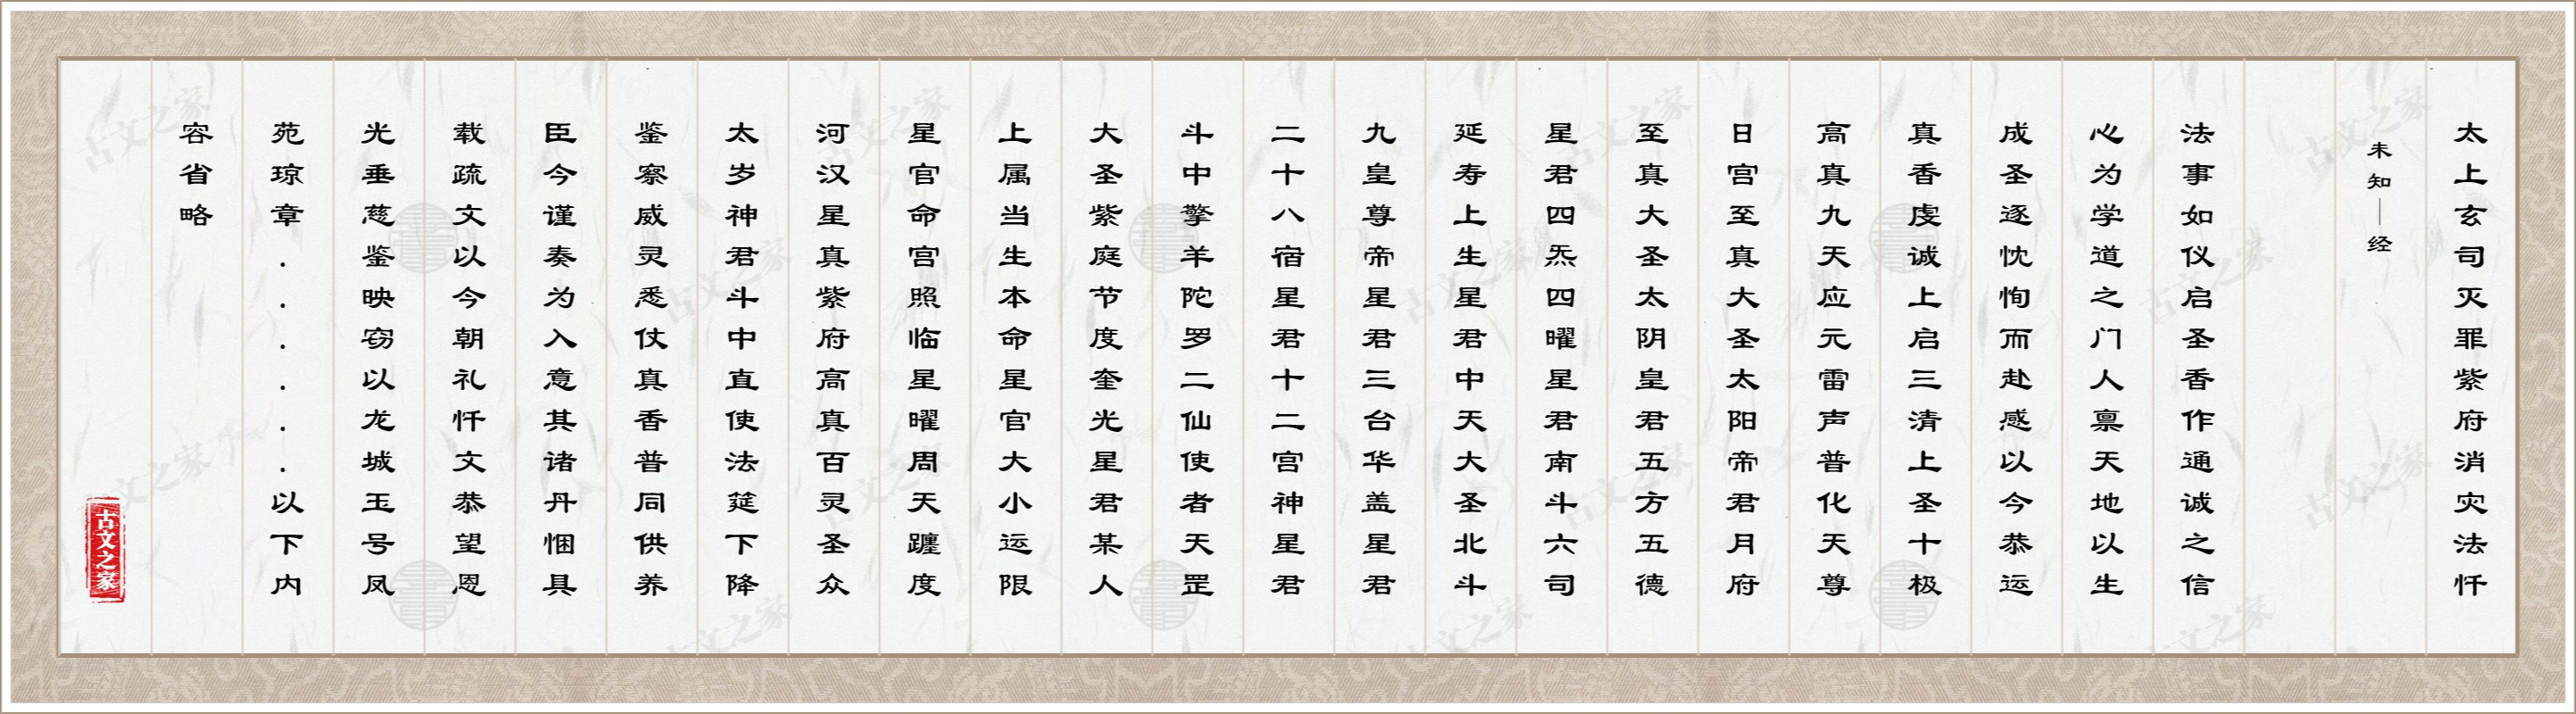 太上玄司灭罪紫府消灾法忏
未知｜经
法事如仪启圣香作通诚之信
心为学道之门人禀天地以生
成圣逐忱恂而赴感以今恭运
真香虔诚上启三清上圣十极
高真九天应元雷声普化天尊
日宫至真大圣太阳帝君月府
至真大圣太阴皇君五方五德
星君四炁四曜星君南斗六司
延寿上生星君中天大圣北斗
九皇尊帝星君三台华盖星君
二十八宿星君十二宫神星君
斗中擎羊陀罗二仙使者天罡
大圣紫庭节度奎光星君某人
上属当生本命星官大小运限
星官命宫照临星曜周天躔度
河汉星真紫府高真百灵圣众
太岁神君斗中直使法筵下降
鉴察威灵悉仗真香普同供养
臣今谨奏为入意其诸丹悃具
载疏文以今朝礼忏文恭望恩
光垂慈鉴映窃以龙城玉号凤
苑琼章......以下内
容省略
古文之家